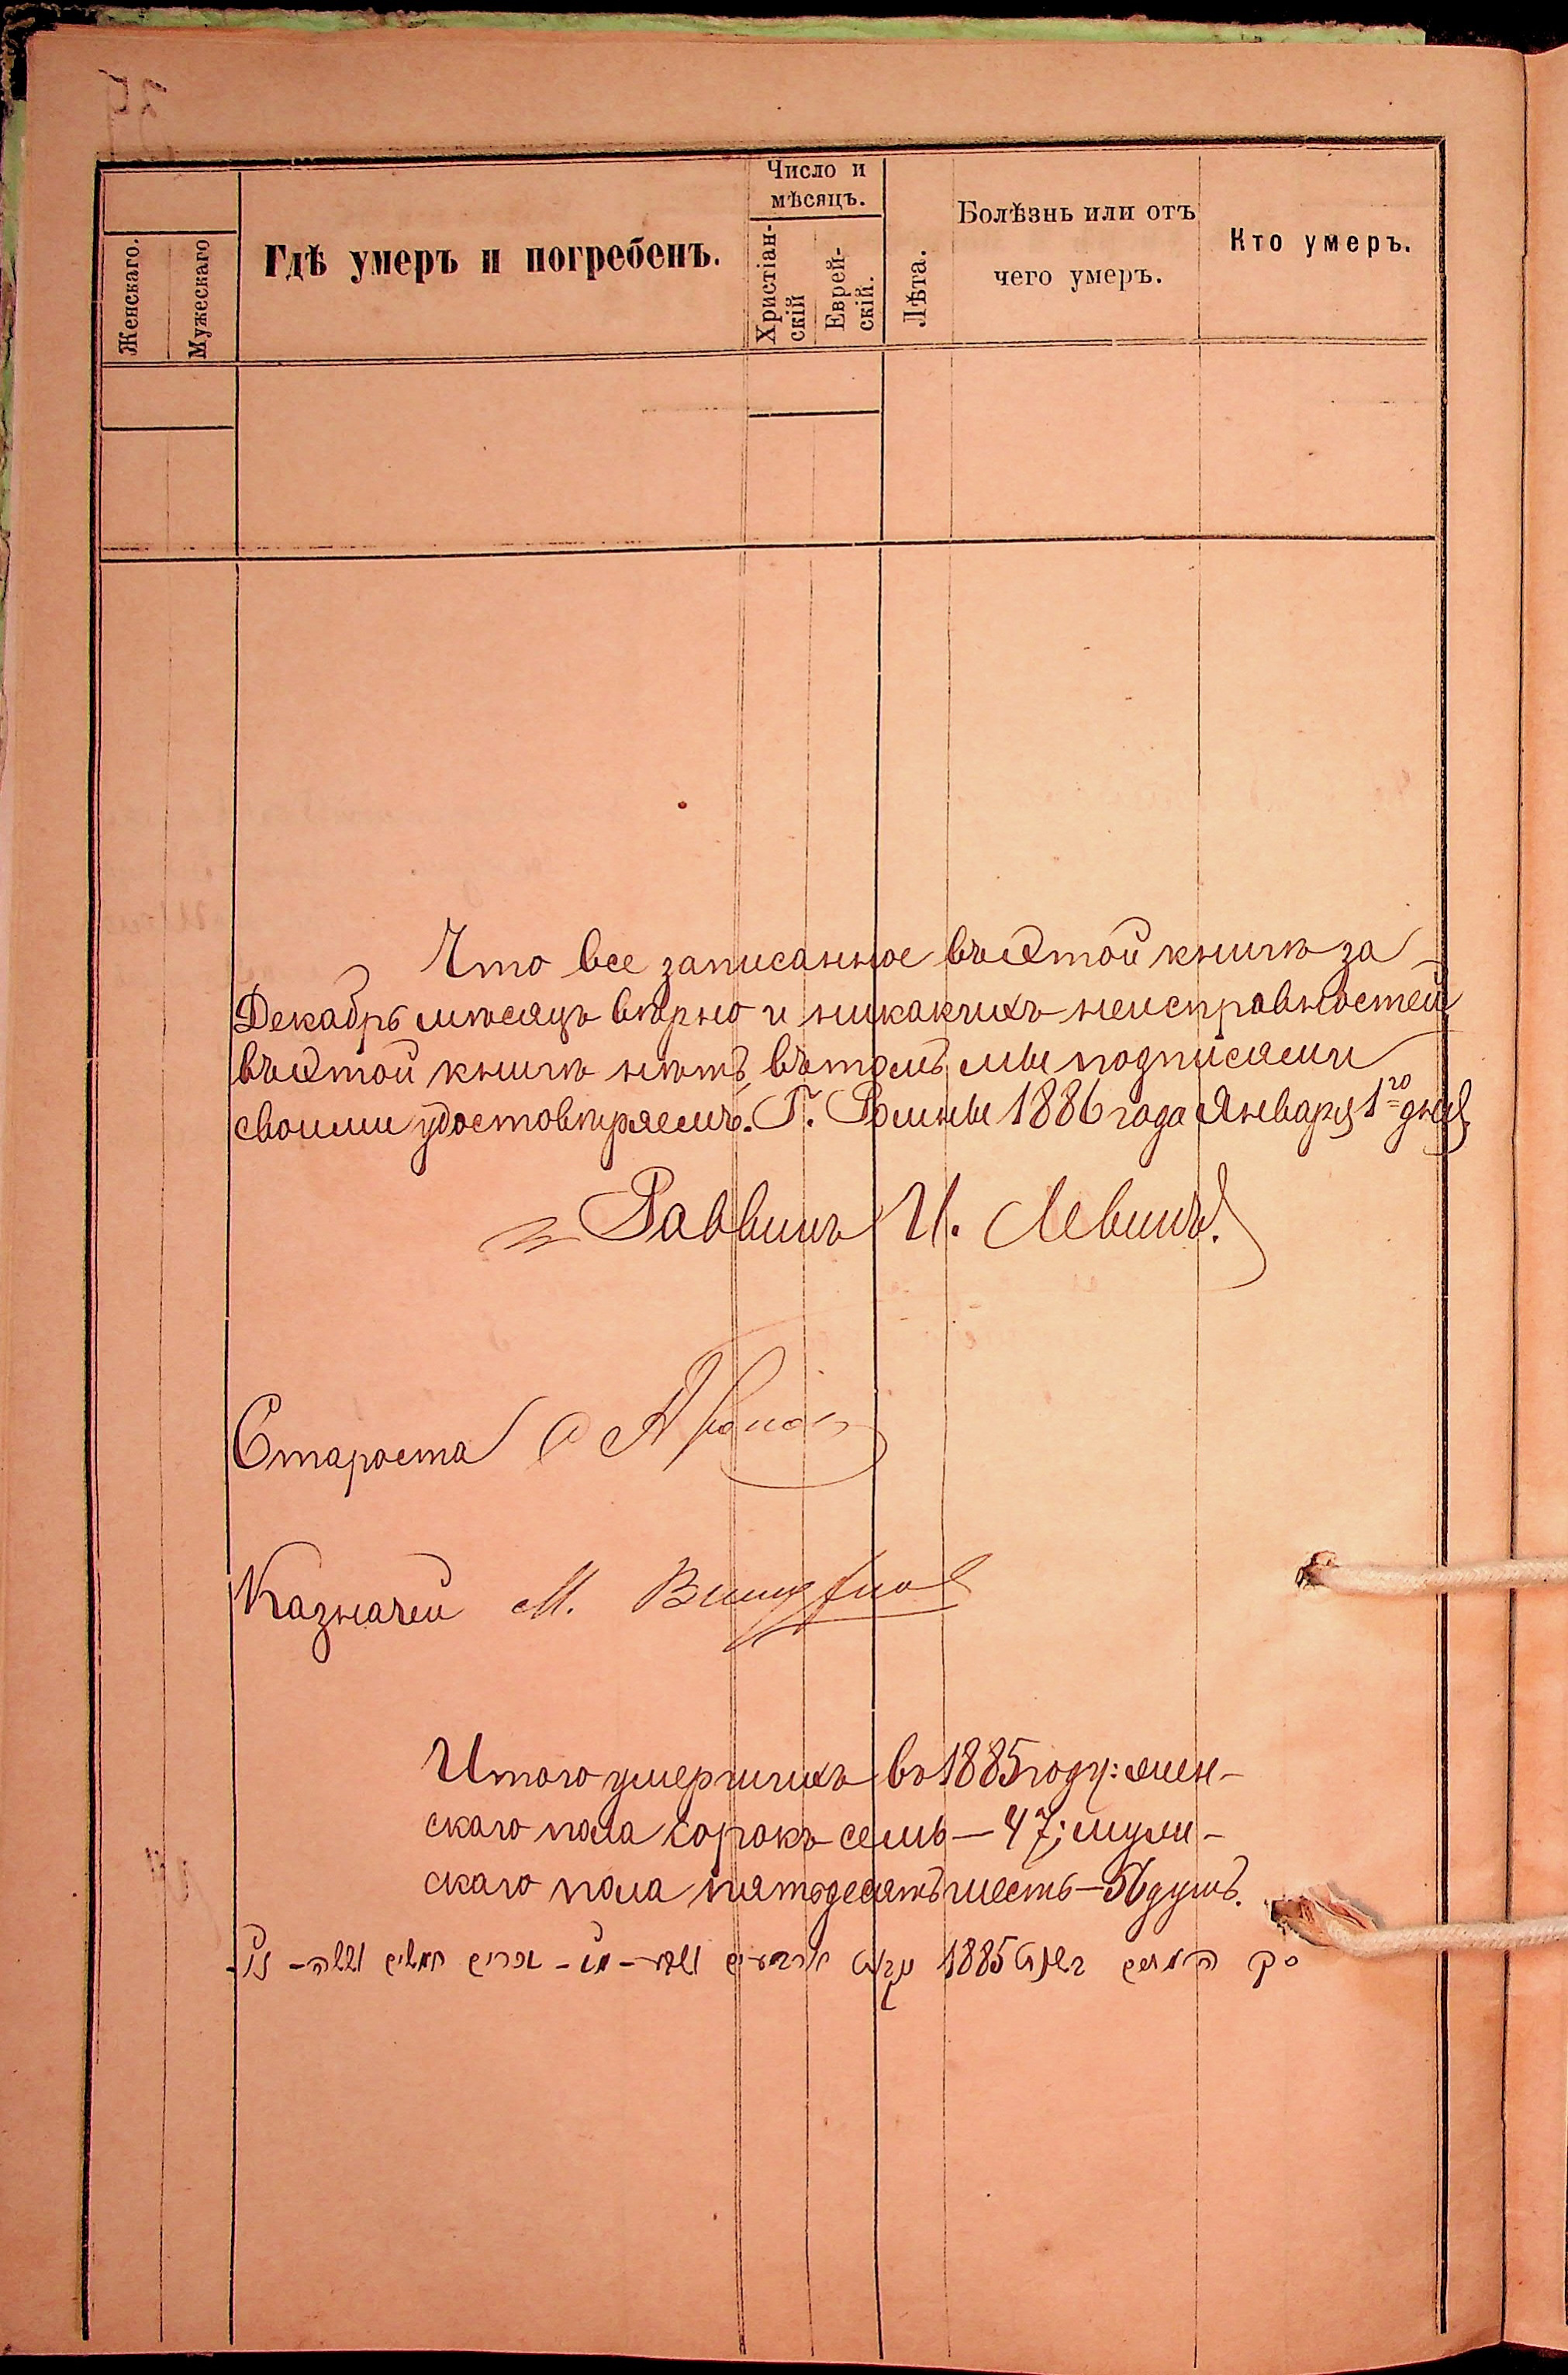 Число и
мѣсяцъ.
Женскаго.
Мужескаго
Гдѣ умеръ и погребенъ.
Христіан-
скій
Еврей-
скій.
Лѣта.
Болѣзнь или отъ
чего умеръ.
Кто умеръ.
Что все записанное въ этой книгѣ за
Декабрь мѣсяцъ вѣрно и никакихъ неисправностей
въ этой книгѣ нѣтъ, въ томъ мы подписями
своими удостовѣряемъ. Г. Ромны 1886 года Января 1го дня
Раввинъ И. Левинъ.
Староста
Казначей М.
Итого умершихъ въ 1885 году: жен-
скаго пола сорокъ семь — 47; муже-
скаго пола пятьдесятъ шесть — 56 душъ.
סך המתים בשנת 1885